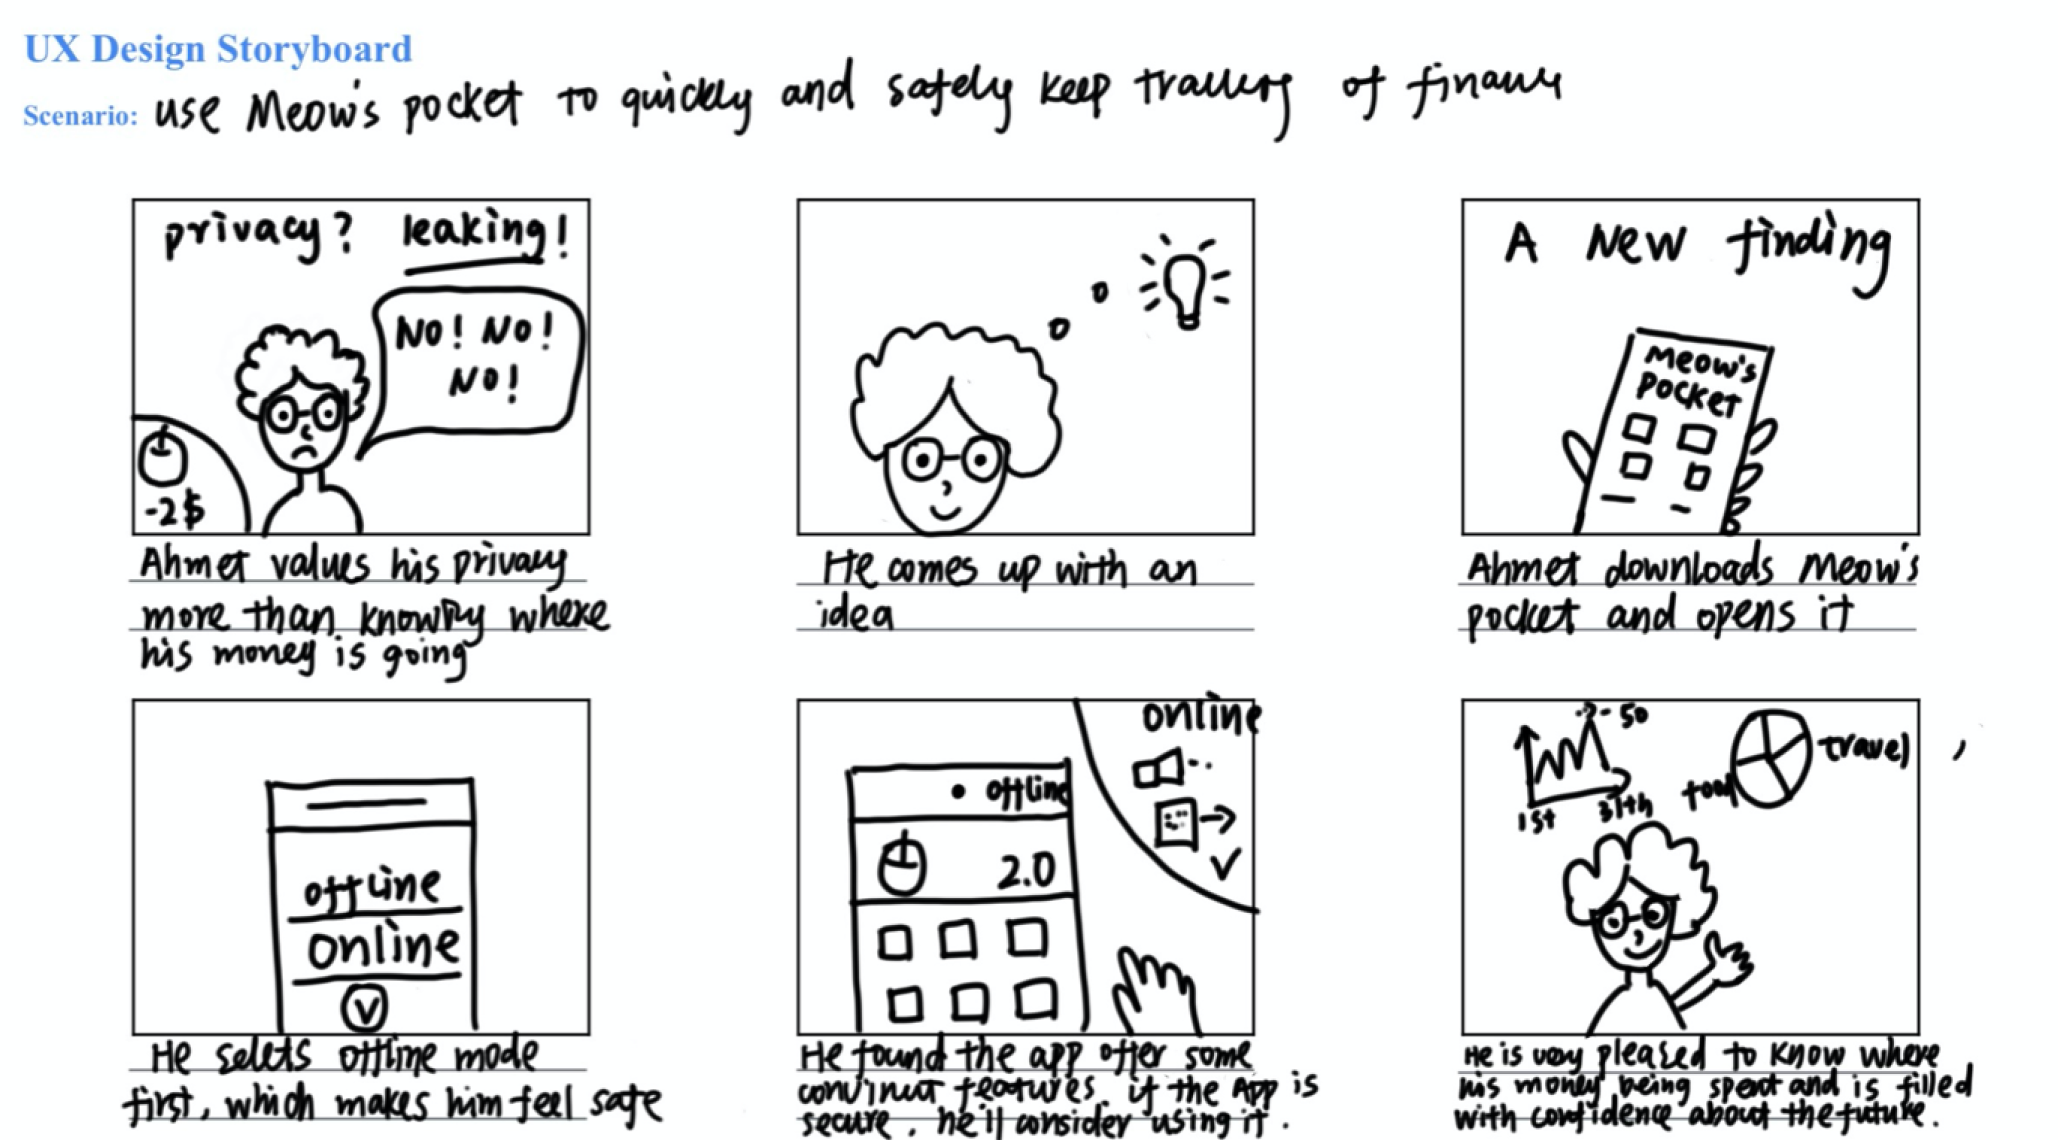 UX Design Storyboard
Scenario: use Meow's pocket to quickly and safely keep tracking of finance
privacy? leaking!
NO! NO!
NO!
-2$
Ahmet values his privacy
more than knowing where
his money is going
He comes up with an
idea
A New finding
Meow's
pocket
Ahmet downloads Meow's
pocket and opens it
offline
online
V
He selets offline mode
first, which makes him feel safe
online
offline
2.0
He found the app offer some
features. if the App is
secure, he'll consider using it.
50
1st
31th
food
travel
He is very pleased to know where
his money being spent and is filled
with confidence about the future.